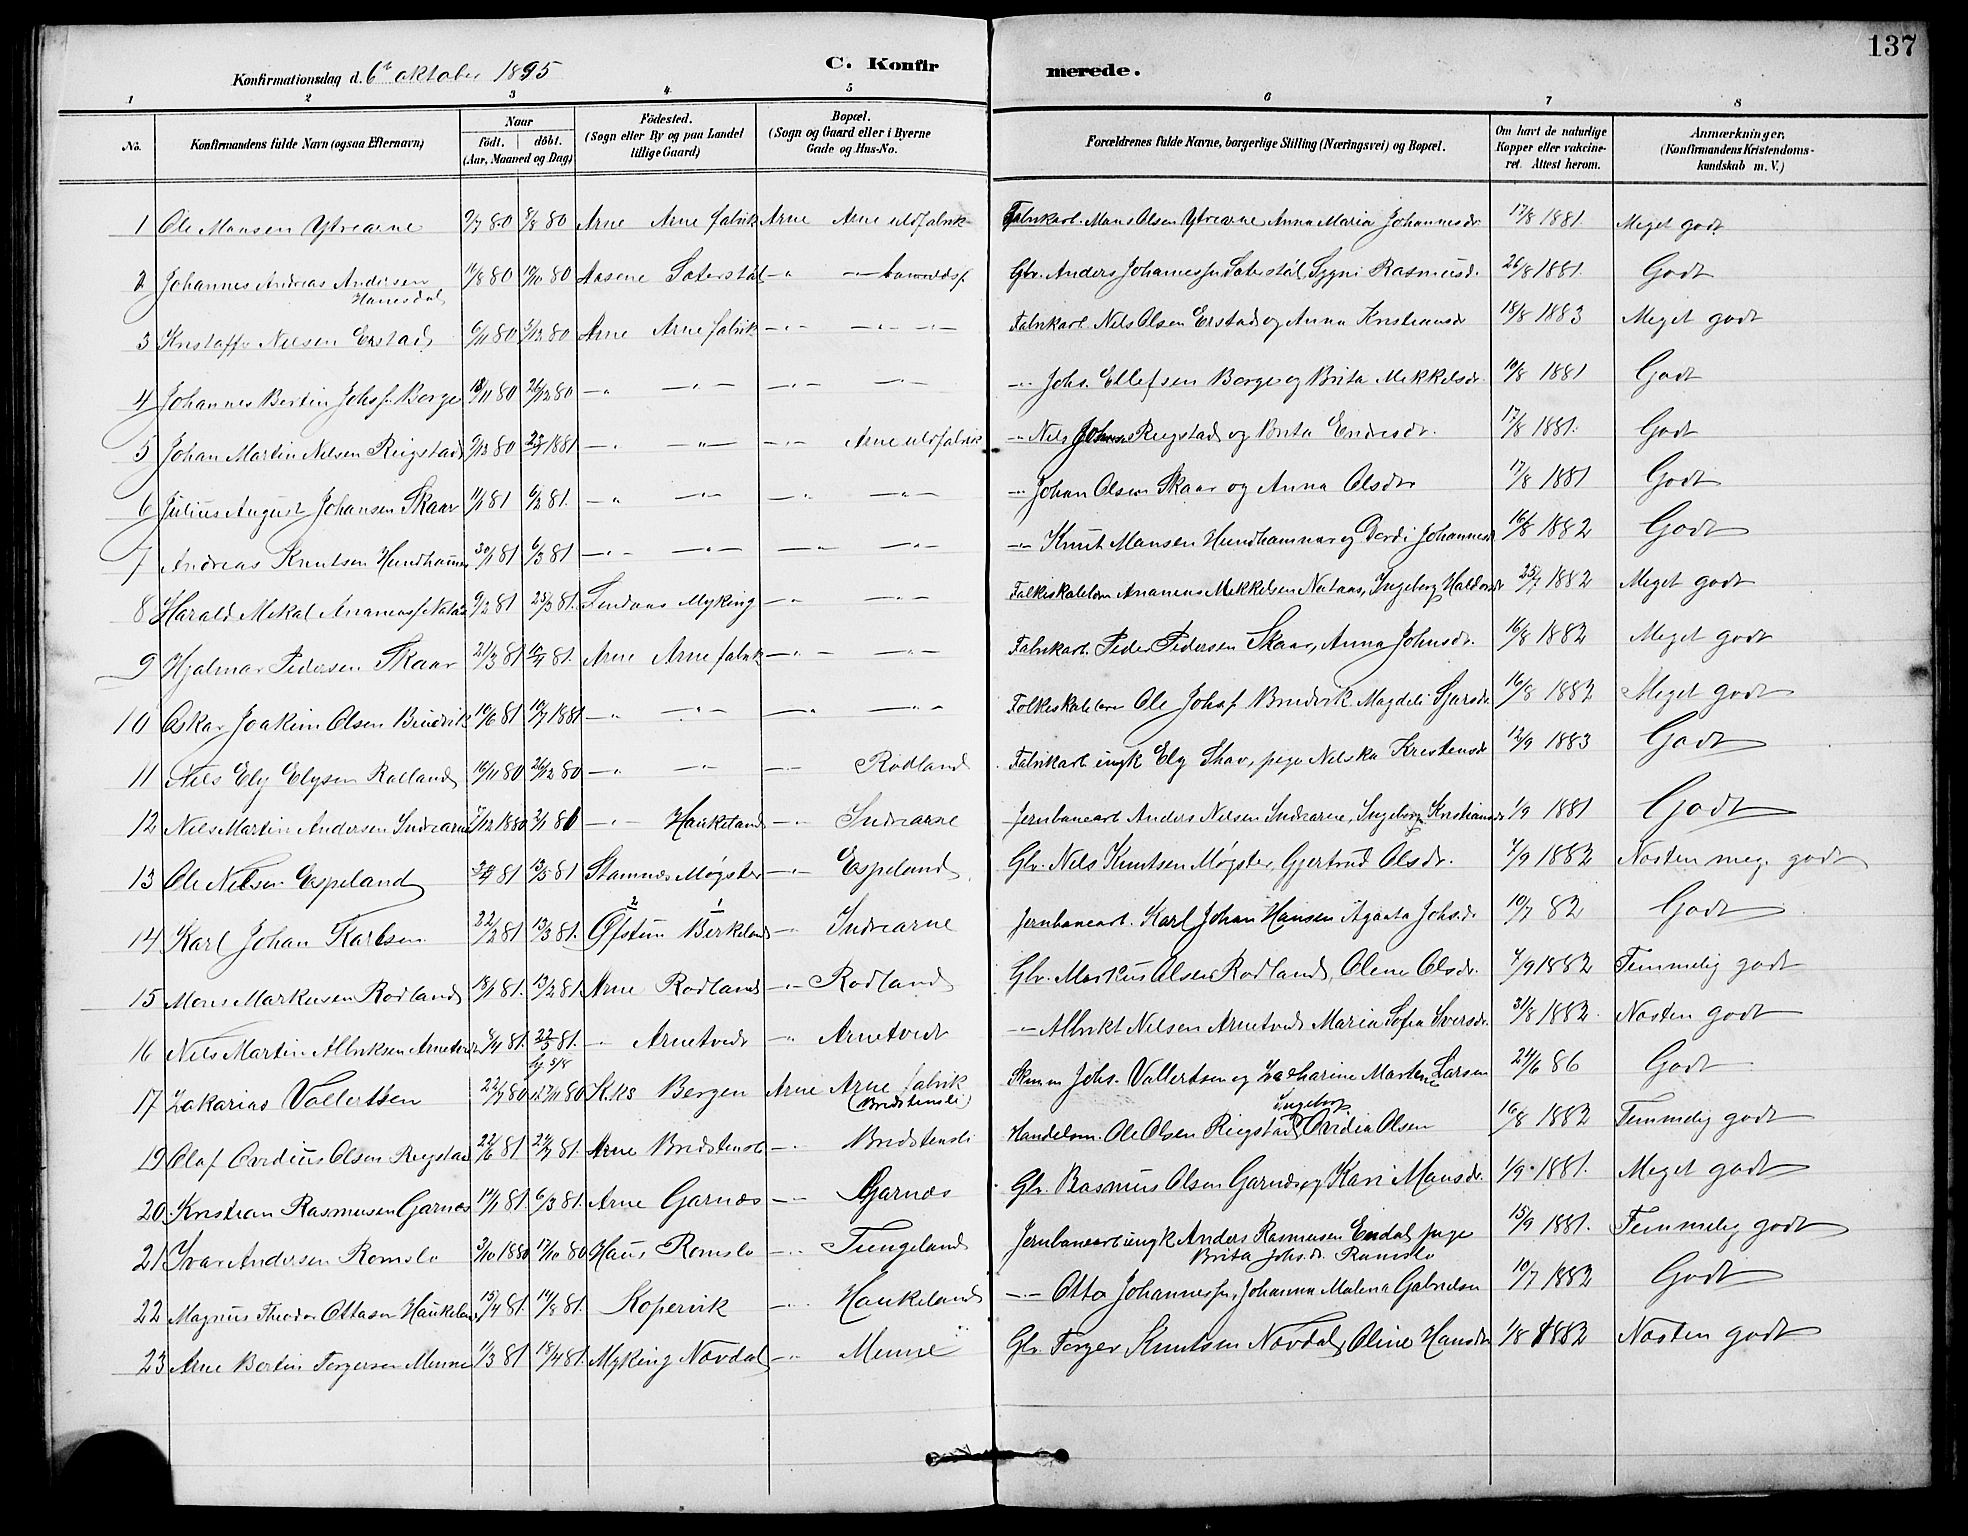 137
Konfirmationsdag d. 6te oktober 1895
C. Konfirmerede.
1 2 3 4 5 6 7 8
No. Konfirmandens fulde Navn (ogsaa Efternavn) Naar født. døbt. (Aar, Maaned og Dag) Fødested. (Sogn eller By og paa Landet tillige Gaard) Bopæl. (Sogn og Gaard eller i Byerne Gade og Hus-No. Forældrenes fulde Navne, borgerlige Stilling (Næringsvei) og Bopæl. Om havt de naturlige Kopper eller vakcineret. Attest herom. Anmærkninger, (Konfirmandens Kristendomskundskab m. V.)
1 Ole Monsen Ytrearne 9/7 80 8/8 80 Arne Arne fabrik Arne Arne uldfabrik Fabrikarb. Mons Olsen Ytrearne Anna Maria Johannesdr. 17/8 1881 Meget godt
2 Johannes Andreas Andersen 11/8 80 10/10 80 Aasene Sæterstøl -"- Gbr. Anders Johannessen Sæterstøl, Sygni Rasmusdr. 26/8 1881. Godt
3 Kristoffer Nilsen Erstad 6/11 80 5/12 80 Arne Arne fabrik -"- -"- Fabrikarb. Nils Olsen Erstad og Anna Kristiansdr 18/8 1883 Meget godt
4 Johannes Bertin Johsf. Borge 18/11 80 26/12 80 -"- -"- -"- -"- -"- Johs. Ellefsen Borge og Brita Mikkelsdr. 10/8 1881 Godt
5 Johan Martin Nilsen Reigstad 9/12 80 23/1 1881. -"- -"- -"- Arne uldfabrik -"- Nils Johans Reigstad og Brita Endresdr. 17/8 1881. Godt
6 Julius August Johansen Skaar 11/1 81 6/2 81. -"- -"- -"- -"- -"- Johan Olsen Skaar og Anna Olsdr 17/8 1881 Godt
7 Andreas Knutsen Hundhammer 30/1 81 6/3 81 -"- -"- -"- -"- -"- Knut Monsen Hundhammer og Dordi Johannesdr 16/8 1882 Godt
8 Harald Mikal Ananiasf. Nataas 9/2 81 25/3 81. Lindaas Myking -"- -"- Folkeskolelærer Ananias Mikkelsen Nataas, Ingeborg Haldorsdr 25/7 1882 Meget godt
9 Hjalmar Pedersen Skaar 21/3 81 10/4 81. Arne Arne fabrik -"- -"- Fabrikarb. Peder Pedersen Skaar, Anna Johnsdr. 16/8 1882 Meget godt
10 Oskar Joakim Olsen Bruvik 10/6 81 10/7 1881 -"- -"- -"- -"- Folkeskolelærer Ole Johsf. Bruvik Magdeli Sjursdr. 16/8 1882 Meget godt
11 Nils Ely Elysen Rødland 10/11 80 26/12 80 -"- -"- -"- Rødland Fabrikarb. ungk Ely Skar, pige Nilska Kristensdr 12/9 1883 Godt
12 Nils Martin Andersen Indrearne 7/12 1880 2/1 81 -"- Haukeland -"- Indrearne Jernbanearb Anders Nilsen Indrearne, Ingeborg Kristiansdr 1/9 1881 Godt
13 Ole Nilsen Espeland 81 13/3 81 Stamnæs Møgster -"- Espeland Gbr. Nils Knutsen Møgster, Gjertrud Olsdr. 7/9 1882 Næsten meg. godt
14 Karl Johan Karlsen 22/2 81 13/3 81. Øfstun Birkeland -"- Indrearne Jernbanearb. Karl Johan Hansen Agaata Johsdr 10/7 82 Godt
15 Mons Markusen Rødland 18/1 81. 13/2 81. Arne Rødland -"- Rødland Gbr. Markus Olsen Rødland, Oline Olsdr. 7/9 1882 Temmelig godt
16 Nils Martin Albriktsen Arnetveit 8/4 81. 22/5 81. -"- Arnetvedt -"- Arnetvedt -"- Albrikt Nilsen Arnetvedt Maria Sofia Iversdr. 31/8 1882. Næsten godt
17 Zakarias Vollertsen 22/7 80 12/11 80 K.ks Bergen Arne Arne fabrik (Bredstensli) Johs. Vollertsen og Zacharine Martine Larsen 24/6 86 Godt
19 Olaf Ovidius Olsen Reigstad 22/6 81 24/7 81. Arne Bredstensli -"- Bredstensli Handelsm. Ole Olsen Reigstad, Ingeborg Ovidia Olsen 16/8 1882 Temmelig godt
20 Kristian Rasmusen Garnæs 14/1 81. 6/3 81. Arne Garnæs -"- Garnæs Gbr. Rasmus Olsen Garnæs og Kari Monsdr. 1/9 1881. Meget godt
21 Ivar Andersen Romslo 3/10 1880 17/10 80 Haus Romslo -"- Tungeland Jernbanearb ungk Anders Rasmusen Endal pige Brita Johsdr. Romslo 15/9 1881. Temmelig godt
22 Magnus Theodor Ottosen Haukeland 15/4 81. 14/8 81. Kopervik -"- Haukeland -"- Otto Johannesen, Johanna Malena Gabrielsen 10/7 1882 Godt
23 Arne Bertin Torgersen Minne 11/3 81 18/4 81. Myking Nævdal -"- Minne Gbr. Torger Knutsen Nævdal, Oline Hansdr 1/8 1882 Næsten godt